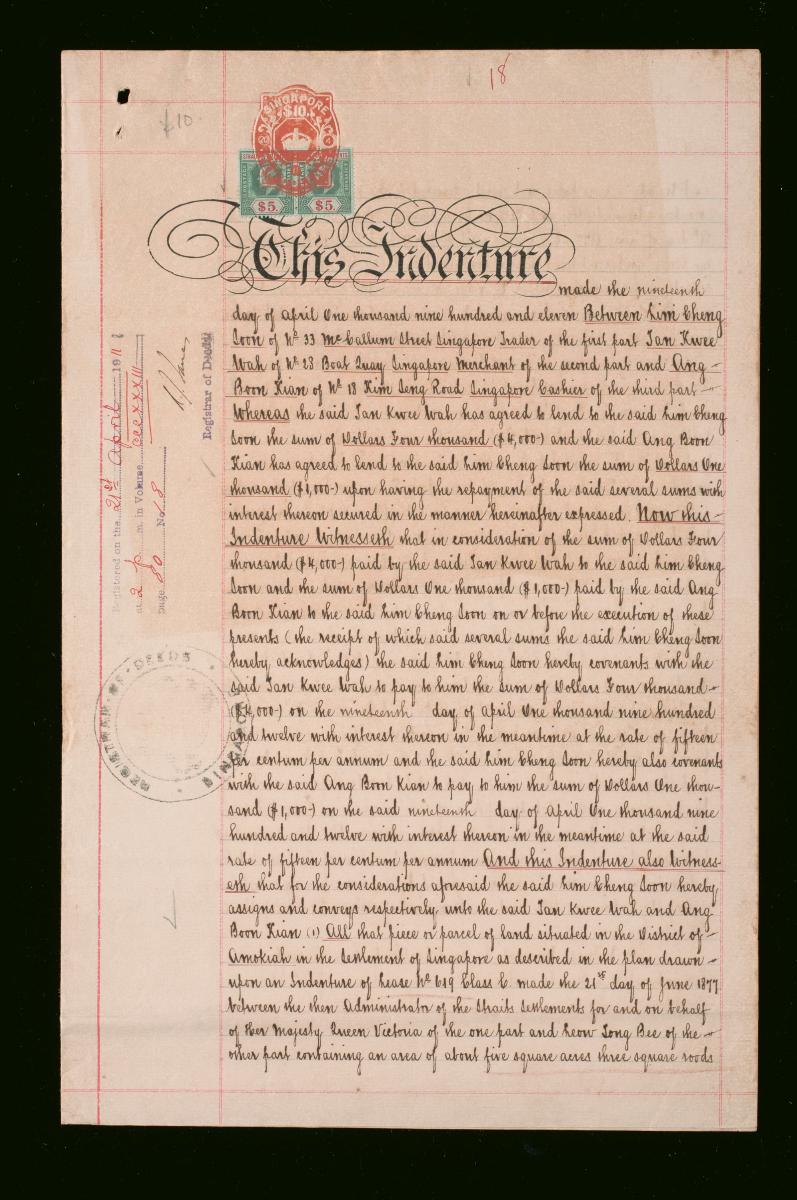 18
$10
SINGAPORE
$10.
$5. $5.
This Indenture
made the nineteenth
day of April One thousand nine hundred and eleven Between Lim Cheng
Soon of No. 33 McCallum Street Singapore Trader of the first part Tan Kwee
Wah of No. 28 Boat Quay Singapore Merchant of the second part and Ang
Boon Kian of No. 18 Kim Seng Road Singapore Cashier of the third part
Whereas the said Tan Kwee Wah has agreed to lend to the said Lim Cheng
Soon the sum of Dollars Four thousand ($4,000-) and the said Ang Boon
Kian has agreed to lend to the said Lim Cheng Soon the sum of Dollars One
thousand ($1,000-) upon having the repayment of the said several sums with
interest thereon secured in the manner hereinafter expressed. Now this
Indenture Witnesseth that in consideration of the sum of Dollars Four
thousand ($4,000-) paid by the said Tan Kwee Wah to the said Lim Cheng
Soon and the sum of Dollars One thousand ($1,000-) paid by the said Ang
Boon Kian to the said Lim Cheng Soon on or before the execution of these
presents (the receipt of which said several sums the said Lim Cheng Soon
hereby acknowledges) the said Lim Cheng Soon hereby covenants with the
said Tan Kwee Wah to pay to him the sum of Dollars Four thousand
($4,000-) on the nineteenth day of April One thousand nine hundred
and twelve with interest thereon in the meantime at the rate of fifteen
per centum per annum and the said Lim Cheng Soon hereby also covenants
with the said Ang Boon Kian to pay to him the sum of Dollars One thou-
sand ($1,000-) on the said nineteenth day of April One thousand nine
hundred and twelve with interest thereon in the meantime at the said
rate of fifteen per centum per annum And this Indenture also Witness-
eth that for the considerations aforesaid the said Lim Cheng Soon hereby
assigns and conveys respectively unto the said Tan Kwee Wah and Ang
Boon Kian (1) All that piece or parcel of land situated in the District of
Amokiah in the Settlement of Singapore as described in the plan drawn
upon an Indenture of Lease No. 649 Class C. made the 21st day of June 1877
between the then Administrator of the Straits Settlements for and on behalf
of Her Majesty Queen Victoria of the one part and Leow Song Bee of the
other part containing an area of about five square acres three square roods
Registered on the 21st April 1911
at 2 p. m. in Volume ccexxxiii
page 80 No 18
Registrar of Deeds
REGISTRAR OF DEEDS SINGAPORE